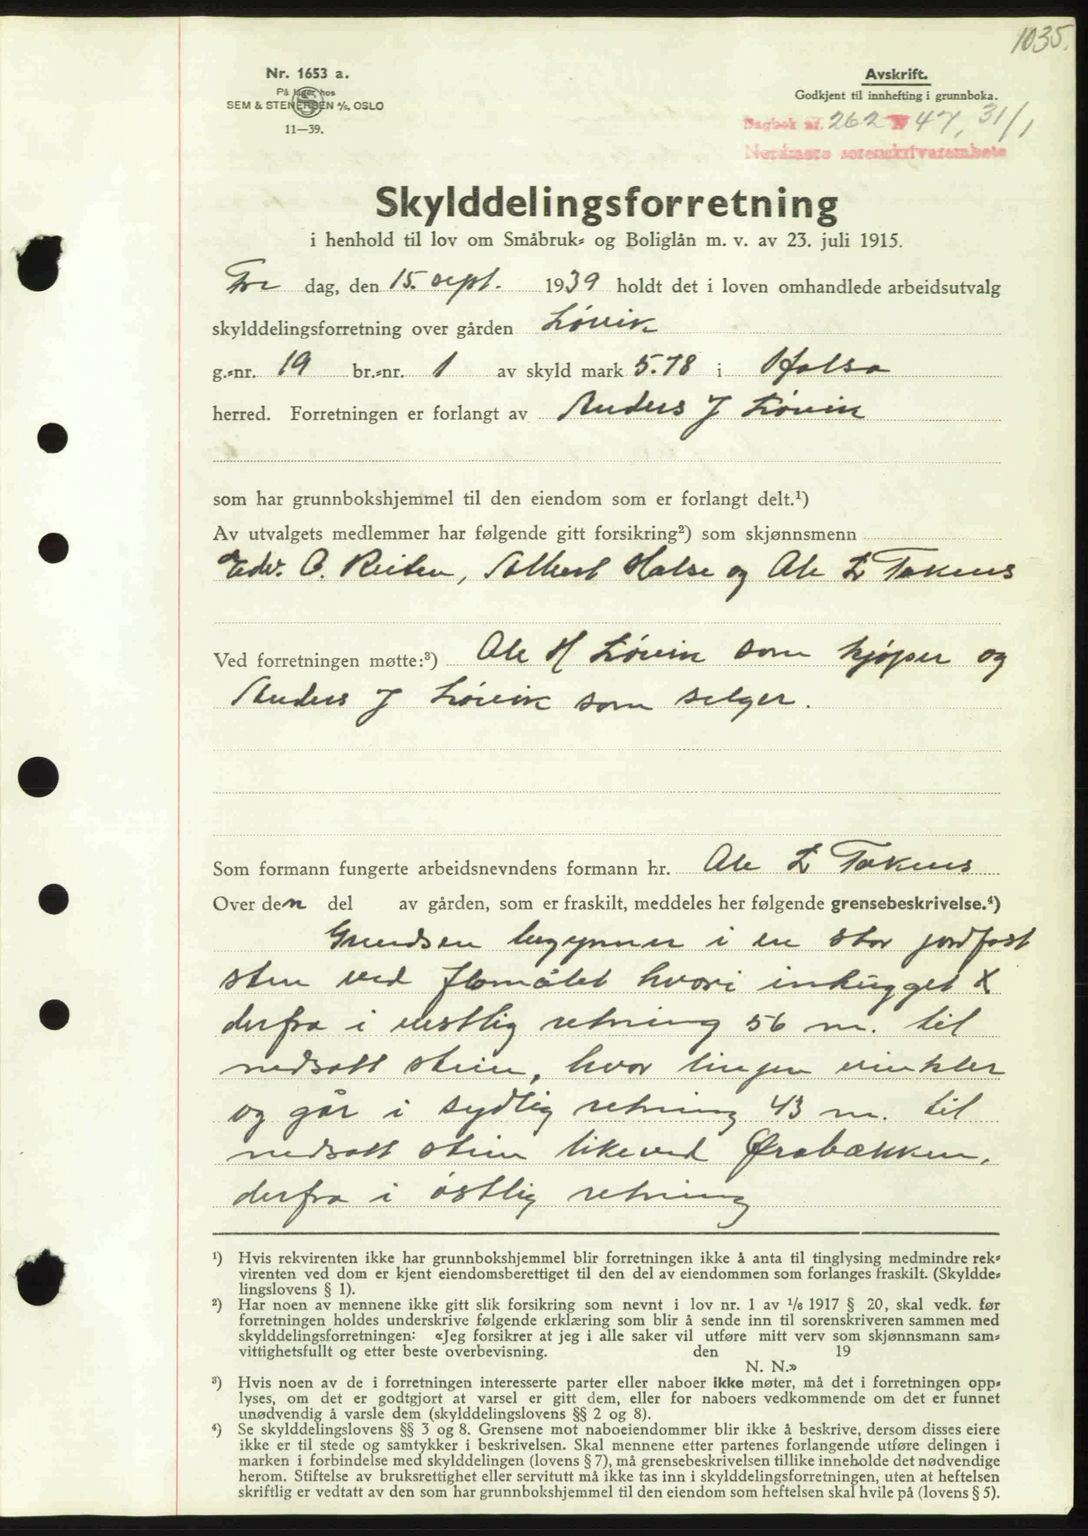 1035.
Nr. 1653 a.
På lager hos
SEM & STENERSEN A/S, OSLO
11—39.
Avskrift.
Godkjent til innhefting i grunnboka.
Dagbok nr. 262 47, 31/1
Nordmøre sorenskriverembete
Skylddelingsforretning
i henhold til lov om Småbruk- og Boliglån m. v. av 23. juli 1915.
Fre dag, den 15. sept. 1939 holdt det i loven omhandlede arbeidsutvalg
skylddelingsforretning over gården Løvik
g.-nr. 19 br.-nr. 1 av skyld mark 5.78 i Halsa
herred. Forretningen er forlangt av Anders J Løvik
som har grunnbokshjemmel til den eiendom som er forlangt delt.¹)
Av utvalgets medlemmer har følgende gitt forsikring²) som skjønnsmenn
Edv. O. Reiten, Albert Halse og Ole L Tøkens
Ved forretningen møtte:³) Ole H Løvik som kjøper og
Anders J Løvik som selger.
Som formann fungerte arbeidsnevndens formann hr. Ole L Tøkens
Over den del av gården, som er fraskilt, meddeles her følgende grensebeskrivelse.⁴)
Grendsen begynner i en stor jordfast
sten ved flomålet hvori inhugget X
derfra i vestlig retning 56 m. til
nedsatt stein, hvor linjen vinkler
og går i sydlig retning 43 m. til
nedsatt stein like ved Ørabækken,
derfra i østlig retning
¹) Hvis rekvirenten ikke har grunnbokshjemmel blir forretningen ikke å anta til tinglysing medmindre rek-
virenten ved dom er kjent eiendomsberettiget til den del av eiendommen som forlanges fraskilt. (Skyldde-
lingslovens § 1).
²) Har noen av mennene ikke gitt slik forsikring som nevnt i lov nr. 1 av 1/6 1917 § 20, skal vedk. før
forretningen holdes underskrive følgende erklæring som blir å sende inn til sorenskriveren sammen med
skylddelingsforretningen: «Jeg forsikrer at jeg i alle saker vil utføre mitt verv som skjønnsmann sam-
vittighetsfullt og etter beste overbevisning. den 19
N. N.»
³) Hvis noen av de i forretningen interesserte parter eller naboer ikke møter, må det i forretningen opp-
lyses, om det er godtgjort at varsel er gitt dem, eller for naboers vedkommende om det er funnet
unødvendig å varsle dem (skylddelingslovens §§ 2 og 8).
⁴) Se skylddelingslovens §§ 3 og 8. Grensene mot naboeiendommer blir ikke å beskrive, dersom disses eiere
ikke er til stede og samtykker i beskrivelsen. Skal mennene etter partenes forlangende utføre delingen i
marken i forbindelse med skylddelingen (lovens § 7), må grensebeskrivelsen tillike inneholde det nødvendige
herom. Stiftelse av bruksrettighet eller servitutt må ikke tas inn i skylddelingsforretningen, uten at heftelsen
skriftlig er vedtatt av den som har grunnbokshjemmel til den eiendom som heftelsen skal hvile på (lovens § 5).